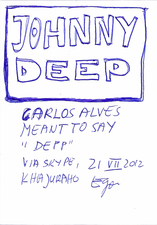 JOHNNY
DEEP
CARLOS ALVES
MEANT TO SAY
"DEPP"
VIA SKYPE, 21 VII 2012
KHAJURAHO